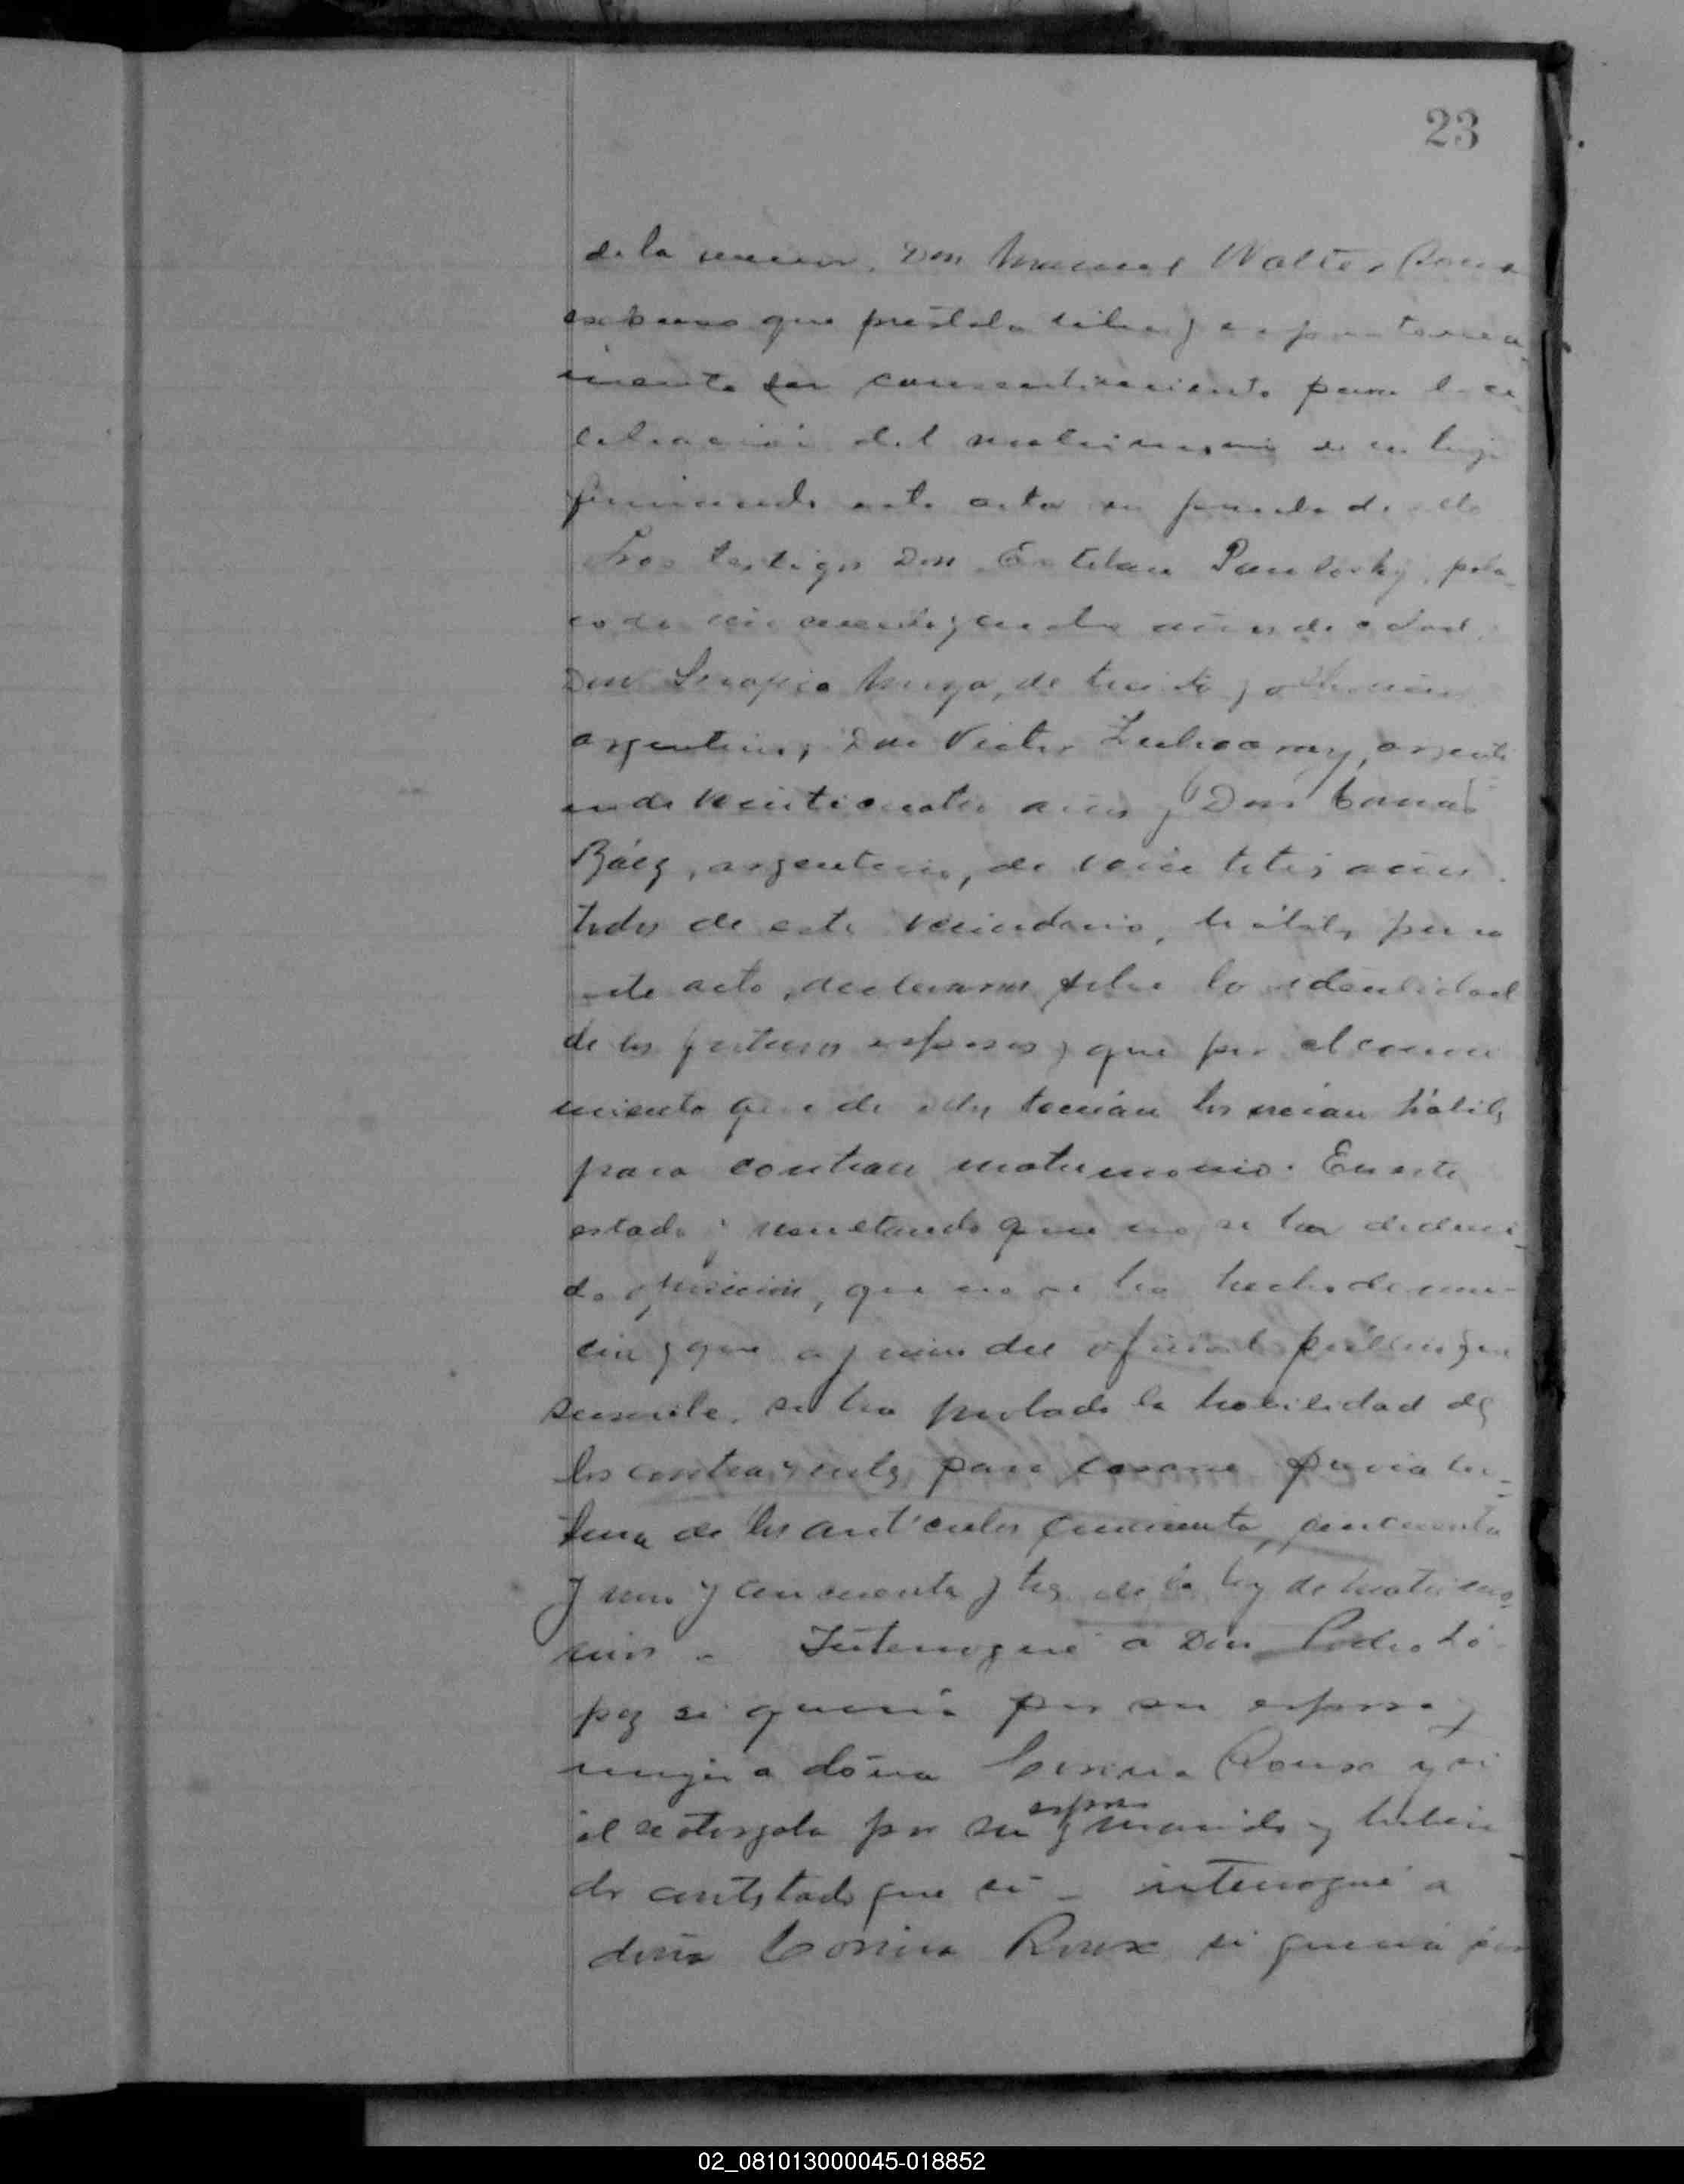 23
de la menor, Don Manuel Walter Roux
expuso que prestaba libre y espontanea
mente su consentimiento para la ce
lebración del matrimonio de su hija
firmando este acta en prueba de ello
Los testigos Don Esteban Pawlosky, pola
co de cincuenta y años de edad,
Don Serapio de treinta y ocho años
argentino, Don Victor argenti
no de veinticuatro años y Don
Báez, argentino, de años.
todos de este vecindario, hábiles para
este acto, declararon sobre la identidad
de los futuros esposos y que por el conoci
miento que de ellos tenían los creían hábiles
para contraer matrimonio. En este
estado y resultando que no se ha deduci
do oposición, que no se ha hecho denun
cia y que a juicio del oficial público que
suscribe, se ha probado la habilidad de
los contrayentes para casarse previa lec
tura de los artículos cincuenta, cincuenta
y uno y cincuenta y tres de la ley de matrimo
nios - Interrogué a Don Pedro Ló
pez si quería por su esposa y
mujer a doña Corina Roux y si
él se otorgaba por su esposo y marido y habien
do contestado que sí - interrogué a
doña Corina Roux si quería por
02_081013000045-018852